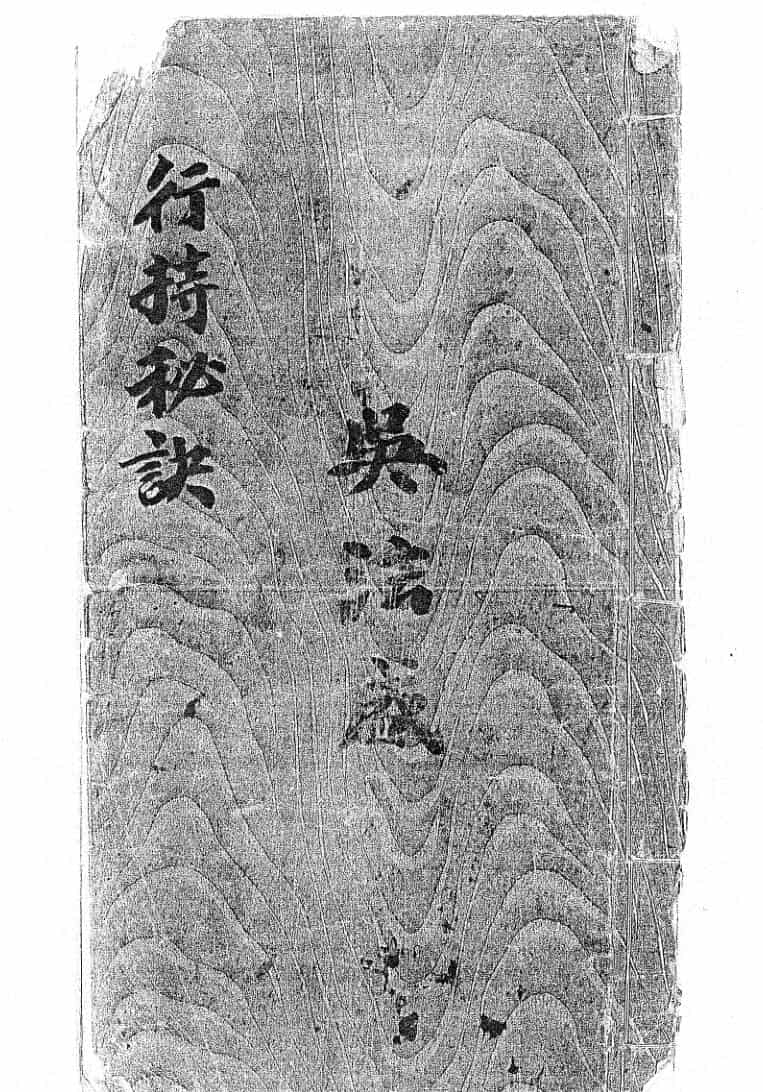 吳法
行持秘訣